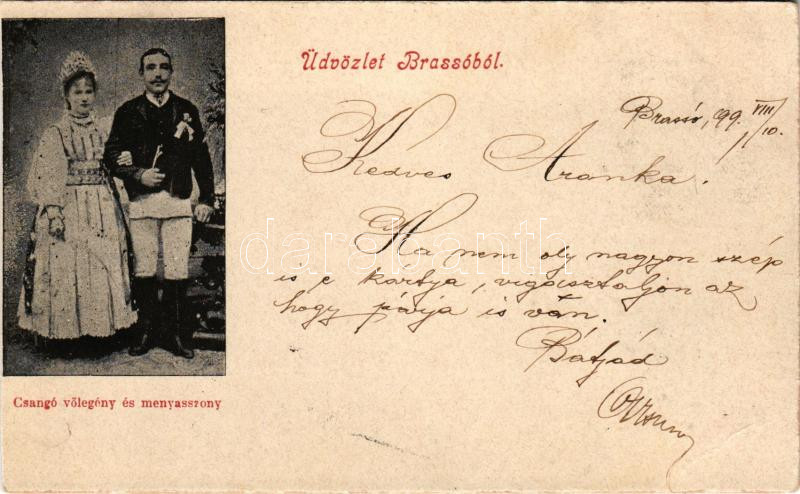 Üdvözlet Brassóból.
Brassó, 99. VIII/10.
Kedves Aranka.
Ha nem oly nagyon szép
is e kartya, vigasztaljon az
hogy párja is van.
Bátyád
Csangó vőlegény és menyasszony
darabanth